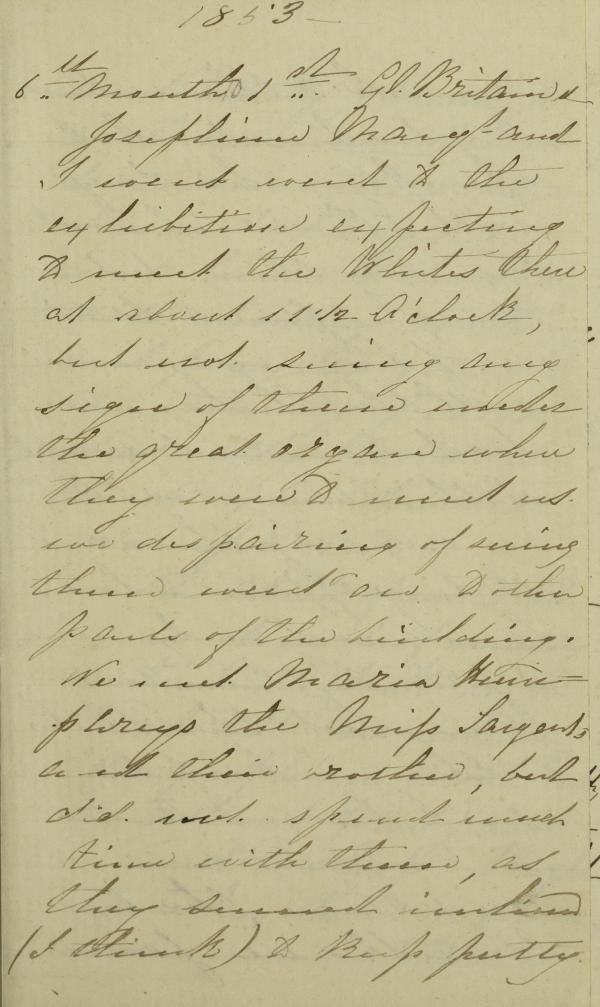 1853 –
6th Month 1st. Gt. Britain &
Josephine Mary and
I went went to the
exhibition expecting
to meet the Whites there
at about 11 1/2 O'clock,
but not seeing any
sign of them under
the great organ where
they were to meet us
we despairing of seeing
them went on to other
parts of the building.
We met Maria Hum=
phreys the Miss Sargents
and their brother, but
did not spend much
time with them, as
they seemed inclined
(I think) to keep pretty